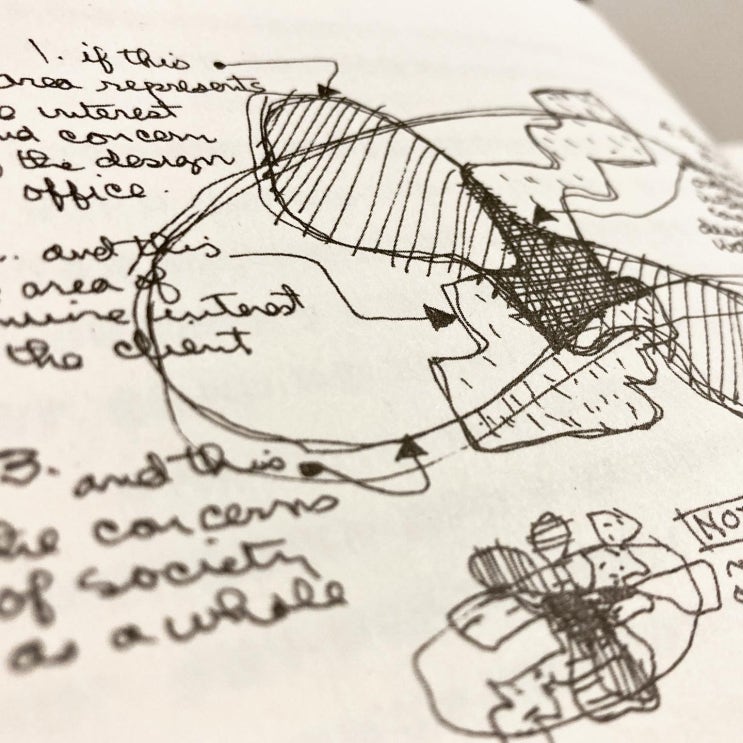 1. if this
area represents
interest
concern
the design
office.
and this
area of
interest
the client
3. and this
the concerns
of society
as a whole
NO